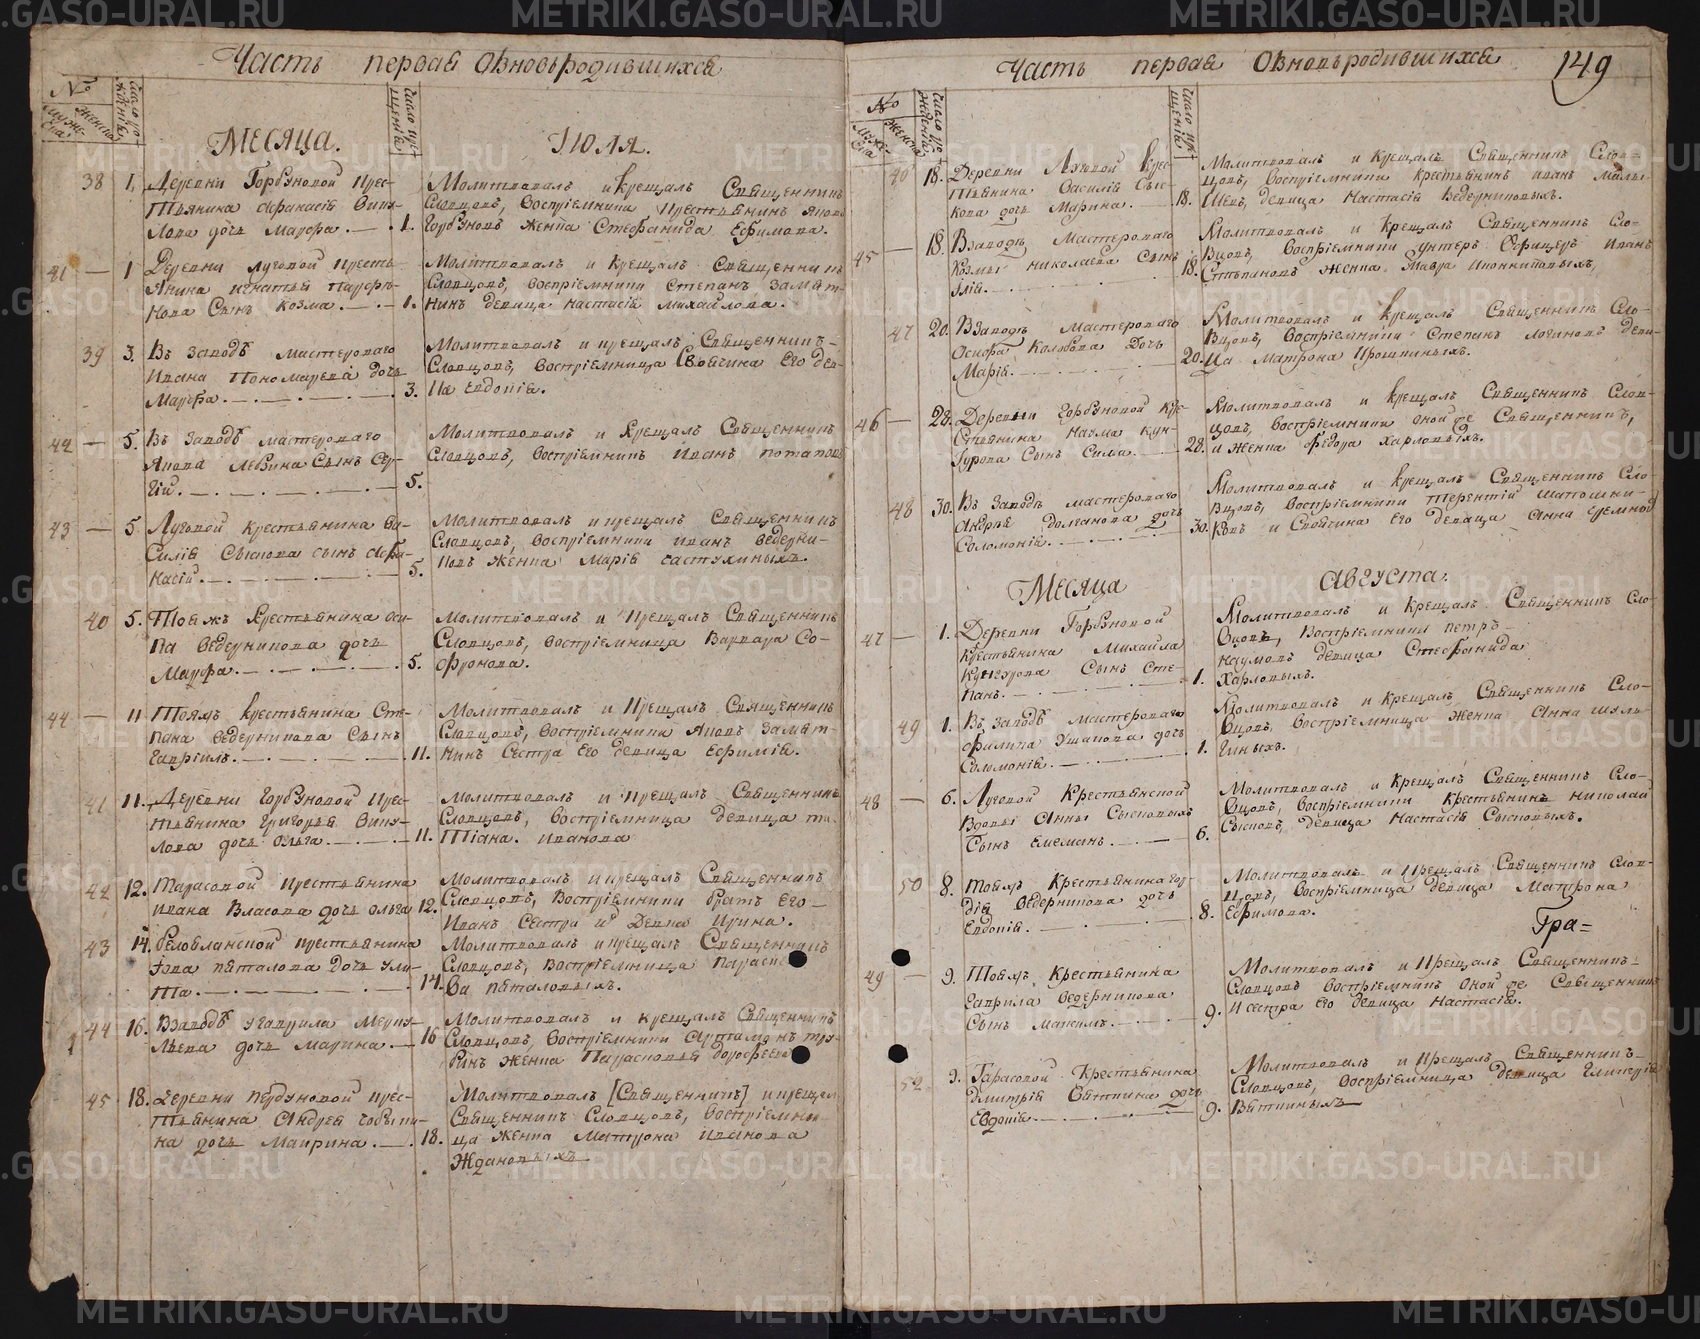 Часть первая Овновьродившихся
№
Месяца. Июля.
38 1. Деревни Горбуновой крес-
тьянина Афанасия Вику-
лова дочь Марфа. 1.
Молитвовалъ и крещалъ Священникъ
Словцовъ, восприемники
Горбуновъ женка Стефанида Ефимова.
41 1 Деревни Луговой кресть-
янина Игнатья
нова Сынъ Козма. 1.
Молитвовалъ и крещалъ Священникъ
Словцовъ, восприемники Степанъ Замят-
нинъ девица Настасия Михайлова.
39 3. Въ Заводѣ мастероваго
Ивана Пономарева дочь
Марфа. 3.
Молитвовалъ и крещалъ Священникъ
Словцовъ, восприемница Своячина Его дев-
ка Евдокия.
42 5. Въ Заводѣ мастероваго
Якова Левина Сынъ Сер-
гий. 5.
Молитвовалъ и крещалъ Священникъ
Словцовъ, восприемникъ Иванъ Потапов
43 5 Луговой крестьянина Ва-
силия Сыскова сынъ Афа-
насий. 5.
Молитвовалъ и крещалъ Священникъ
Словцовъ, восприемники Иванъ Ведерни-
ковъ женка Мария
40 5. Тояжъ крестьянина Оси-
па Ведерникова дочь
Марфа. 5.
Молитвовалъ и крещалъ Священникъ
Словцовъ, восприемница Варвара Со-
фронова.
44 11 Тояжъ крестьянина Сте-
пана Ведерникова Сынъ
Гавриилъ. 11.
Молитвовалъ и крещалъ Священникъ
Словцовъ, восприемники Яковъ Замят-
нинъ Сестра Его девица Ефимия.
41 11. Деревни Горбуновой крес-
тьянина Григорья Вику-
лова дочь Ольга. 11.
Молитвовалъ и крещалъ Священникъ
Словцовъ, восприемница девица та-
тиана. Иванова
42 12. Тарасовой крестьянина
Ивана Власова дочь Ольга 12.
Молитвовалъ и крещалъ Священникъ
Словцовъ, восприемники братъ Его
Иванъ Сестра Ирина.
43 14. крестьянина
Пяталова дочь Ули-
та. 14.
Молитвовалъ и крещалъ Священникъ
Словцовъ, восприемница
ва Пяталовыхъ.
44 16. Взаводѣ у Гаврила
дочь Марина. 16
Молитвовалъ и крещалъ Священникъ
Словцовъ, восприемники
женка Парасковья
45 18. Деревни Горбуновой крес-
тьянина Андрея
на дочь Маирина. 18.
Молитвовалъ [Священникъ] и крещал
Священникъ Словцовъ, восприемни-
ца женка Матрона Иванова
Ждановыхъ
Часть первая Овновьродившихся 149
№
18. Деревни Луговой крес-
тьянина Василия Сыс-
кова дочь Марина. 18.
Молитвовалъ и крещалъ Священникъ Слов-
цовъ, восприемники крестьянинъ Иванъ Малы-
шевъ, девица Настасия Ведерниковыхъ.
45 18. Взаводѣ Мастероваго
Козмы Николаева Сынъ
Илия. 18.
Молитвовалъ и крещалъ Священникъ Сло-
вцовъ, восприемники унтеръ Офицеръ Иванъ
Степановъ женка Мавра
47 20. Взаводѣ Мастероваго
Осифа дочь
Мария. 20.
Молитвовалъ и крещалъ Священникъ Сло-
вцовъ, восприемники Степанъ Логиновъ деви-
ца Матрона
46 28. Деревни Горбуновой кре-
стьянина Наума Кун-
гурова Сынъ Сила. 28.
Молитвовалъ и крещалъ Священникъ Слов-
цовъ, восприемники оной же Священникъ,
и женка Федора Харловыхъ.
48 30. Въ Заводѣ мастероваго
Андрея Долманова дочь
Соломония. 30.
Молитвовалъ и крещалъ Священникъ Сло
вцовъ, восприемники Терентий Шапошни-
ковъ и Своячина Его девица Анна
Месяца Августа.
47 1. Деревни Горбуновой
крестьянина Михайла
Кунгурова Сынъ Сте-
панъ. 1.
Молитвовалъ и крещалъ Священникъ Сло-
вцовъ, восприемники Петръ
Наумовъ девица Стефанида
Харловыхъ.
49 1. Въ Заводѣ мастероваго
Филипа Ушакова дочь
Соломония. 1.
Молитвовалъ и крещалъ Священникъ Сло-
вцовъ, восприемница женка Анна Шуль-
гиныхъ.
48 6. Луговой Крестьянской
Вдовы Анны Сысковыхъ
Сынъ Емелианъ. 6.
Молитвовалъ и крещалъ Священникъ Сло-
вцовъ, восприемники крестьянинъ Николай
Сысковъ, девица Настасия Сысковыхъ.
50 8. Тояжъ Крестьянина
Ведерникова дочь
Евдокия. 8.
Молитвовалъ и крещалъ Священникъ Слов-
цовъ, восприемница девица Матрона
Ефимова.
Гра=
49 9. Тояжъ Крестьянина
Гаврила Ведерникова
Сынъ Максимъ. 9.
Молитвовалъ и крещалъ Священникъ
Словцовъ восприемникъ Оной же Священникъ
и сестра Его девица Настасия.
52 9. Тарасовой Крестьянина
Дмитрия Вяткина дочь
Евдокия. 9.
Молитвовалъ и крещалъ Священникъ
Словцовъ, восприемница девица Гликерия
Вяткиныхъ
METRIKI.GASO-URAL.RU